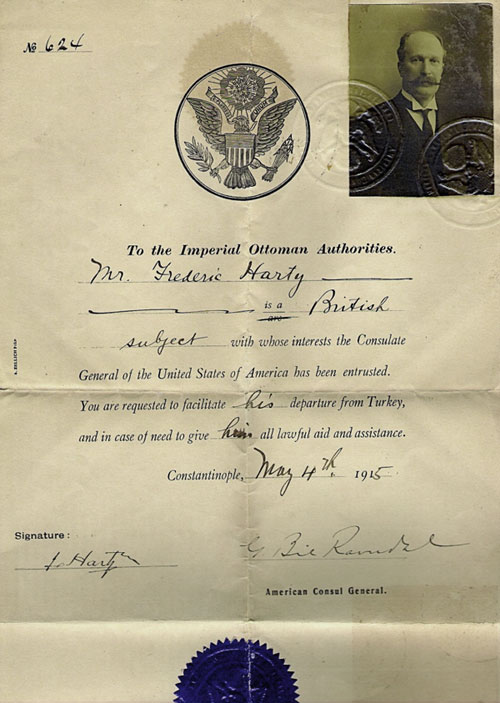 № 624
To the Imperial Ottoman Authorities.
Mr. Frederic Harty
is a are British
subject with whose interests the Consulate
General of the United States of America has been entrusted.
You are requested to facilitate his departure from Turkey,
and in case of need to give him all lawful aid and assistance.
Constantinople, May 4th 1915
Signature:
Harty G Bie Ravndal
American Consul General.